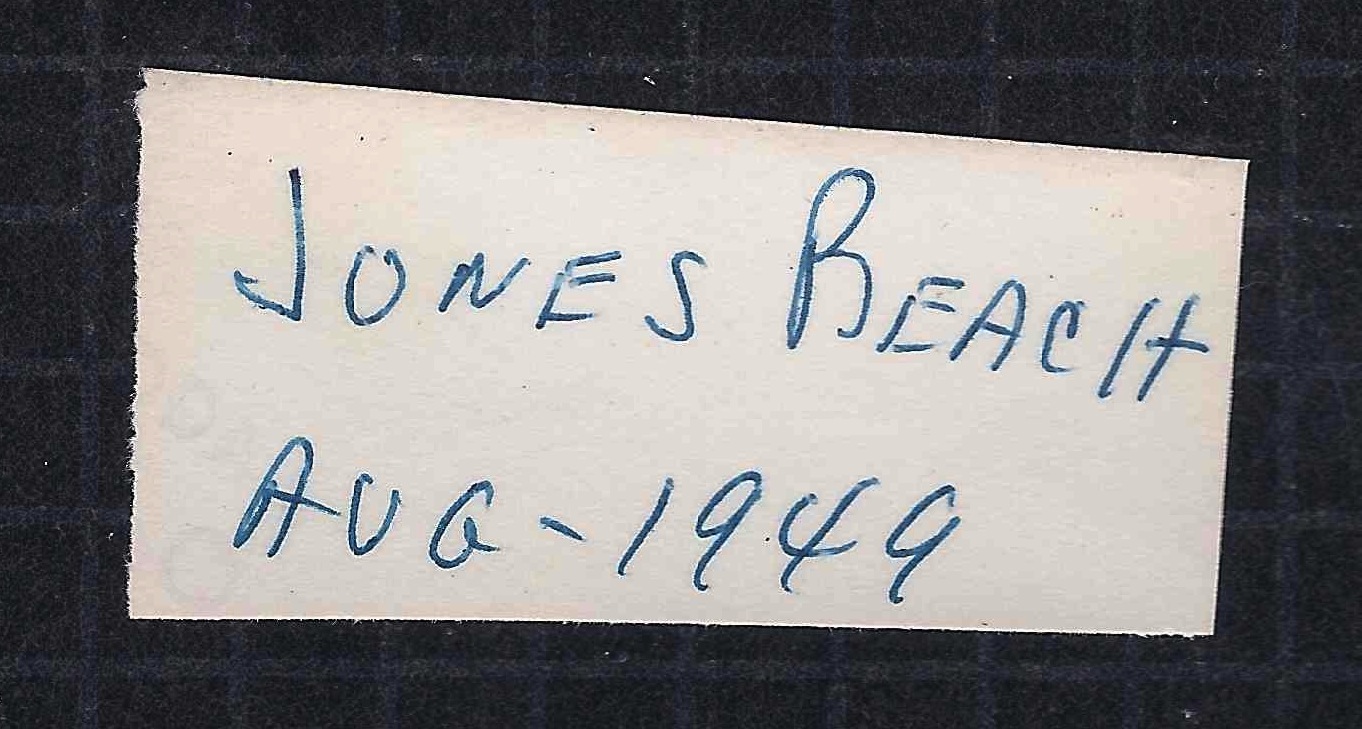 JONES BEACH
AUG-1949